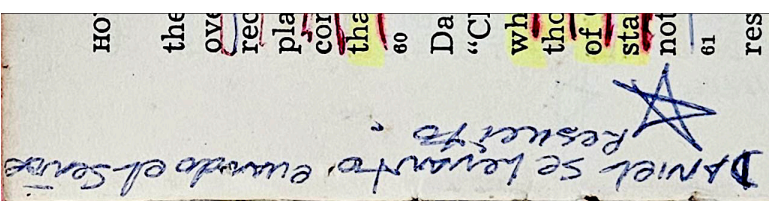 HO
the
ove
red
pla
con
tha
60 Da
"Cl
wh
tho
of
sta
not
61 res
DANIEL se Levanto, cuando el Señor
Resucito.